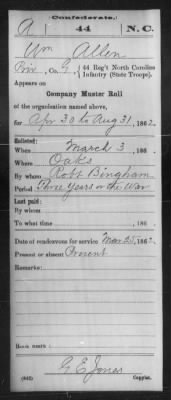 Confederate.
A 44 N.C.
Wm Allen
Priv, Co. G, 44 Reg't North Carolina
Infantry (State Troops).
Appears on
Company Muster Roll
of the organization named above,
for Apr 30 to Aug 31, 1862.
Enlisted:
When March 3, 186
Where Oaks
By whom Robt Bingham
Period Three Years or the War
Last paid:
By whom
To what time , 186 .
Date of rendezvous for service Mar 25, 1862.
Present or absent Present
Remarks:
Book mark:
G E Jones
(642) Copyist.